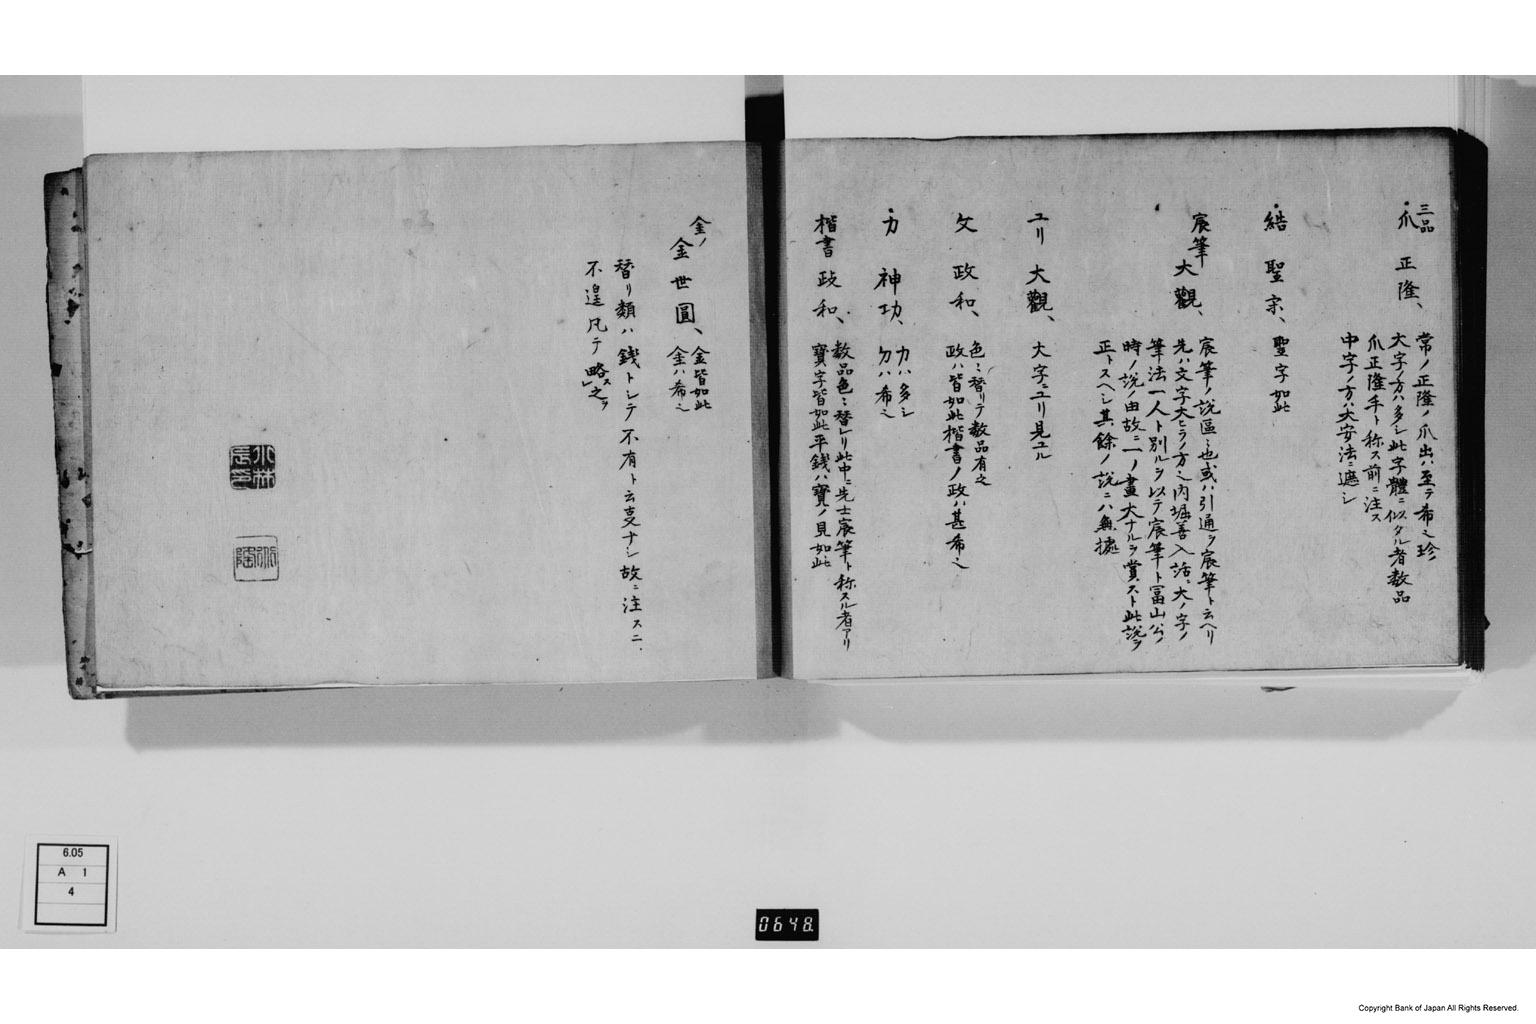 三品
爪 正隆、
常ノ正隆ノ爪出ハ至テ希之珍
大字ノ方ハ多シ此字體ニ似タル者数品
爪正隆手ト称ス前ニ注ス
中字ノ方ハ大安法ニ遮シ
結 聖宗、聖字如此
宸筆大觀、
宸筆ノ説區ミ也或ハ引通ヲ宸筆ト云ヘリ
先ハ文字大ヒラノ方之内堀善入話大ノ字ノ
筆法一人ト別ルヲ以テ宸筆ト冨山公ノ
時ノ説ノ由故ニ一ノ畫大ナルヲ賞スト此説ヲ
正トスヘシ其餘ノ説ニハ無據
ユリ 大觀、大字ニユリ見ユル
攵 政和、
色ミ替リテ数品有之
政ハ皆如此楷書ノ政ハ甚希之
力 神功、
力ハ多シ
ハ希之
楷書 政和、
数品色ミ替レリ此中ニ先士宸筆ト称スル者アリ
寶字皆如此平銭ハ寳ノ見如此
金ノ
金世圓、
金皆如此
金ハ希之
替リ類ハ銭トシテ不有ト云支ナシ故ニ注スニ
不遑凡テ略スレ之ヲ
6.05
A 1
4
0648
Copyright Bank of Japan All Rights Reserved.